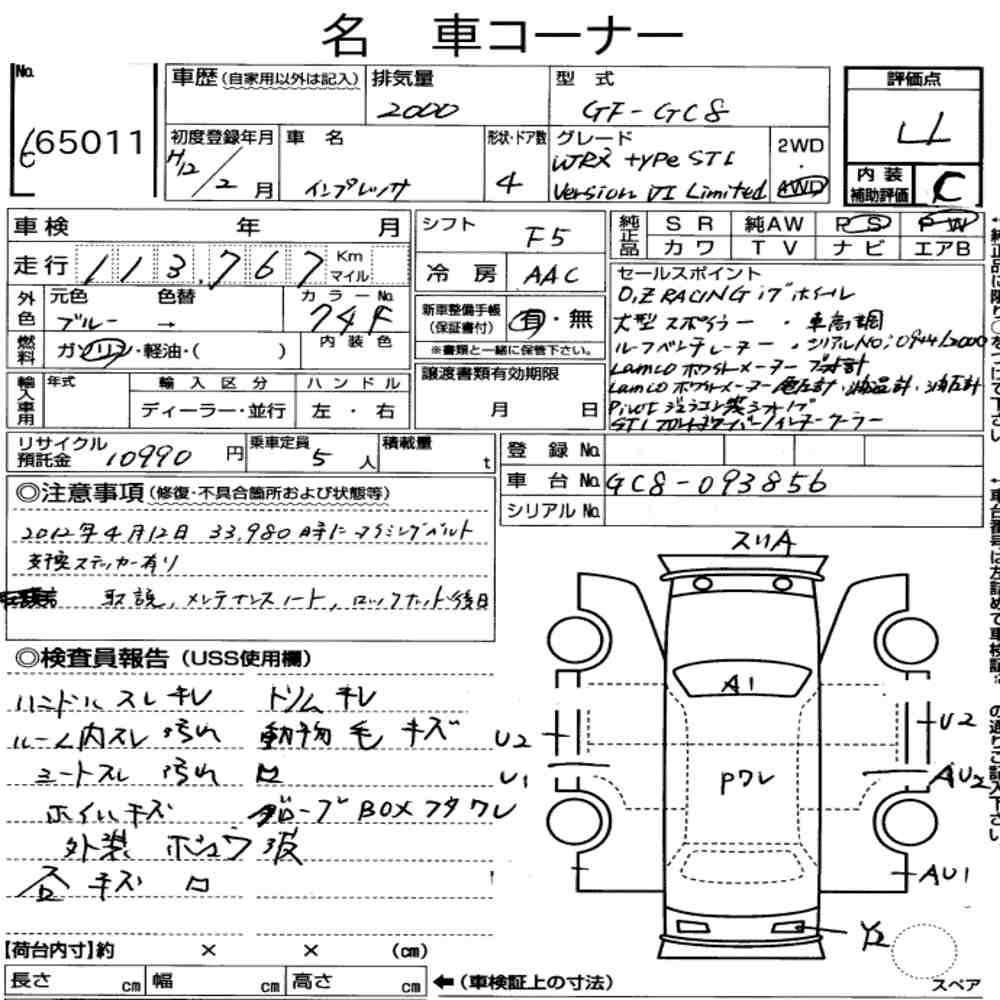 名 車コーナー
No.
65011
車歴(自家用以外は記入)
排気量
2000
型 式
GF-GC8
評価点
4
初度登録年月
H12/2月
車 名
インプレッサ
形状・ドア数
4
グレード
WRX type STI
Version VI Limited
2WD
・
AWD
内 装
補助評価
C
車検 年 月
シフト
F5
純正品
S R 純AW P S P W
カワ T V ナビ エアB
走行 113,767 Km
マイル
冷 房
AAC
セールスポイント
O.Z RACING 17"ホイール
大型スポイラー ・ 車高調
ルーフベンチレーター ・シリアルNo:0944/2000
Lamco ホワイトメーター
Lamco ホワイトメーター 電圧計・油温計・油圧計
外色
元色 色替
ブルー →
カラーNo.
74F
内 装 色
新車整備手帳
(保証書付)
有・無
※書類と一緒に保管下さい。
燃料
ガソリン・軽油・( )
譲渡書類有効期限
月 日
輸入車用
年式
輸 入 区 分
ハ ン ド ル
ディーラー・並行
左 ・ 右
リサイクル
預託金
10990 円
乗車定員
5 人
積載量
t
登 録 No.
車 台 No.
GC8-093856
シリアル No.
◎注意事項(修復・不具合箇所および状態等)
2012年4月12日 33,980 時に タイミングベルト
交換ステッカー有り
取説, メンテナンスノート, ロックナット後日
◎検査員報告(USS使用欄)
ハンドル スレ キレ トリム キレ
ルーム内スレ 汚れ 動物毛 キズ
シートスレ 汚れ ロ
ホイルキズ グローブBOXフタワレ
外装
キズ
スリA
A1
Pワレ
U2
U1
U2
AU2
AU1
Y2
スペア
【荷台内寸】約 × × (cm)
長さ cm 幅 cm 高さ cm
←(車検証上の寸法)